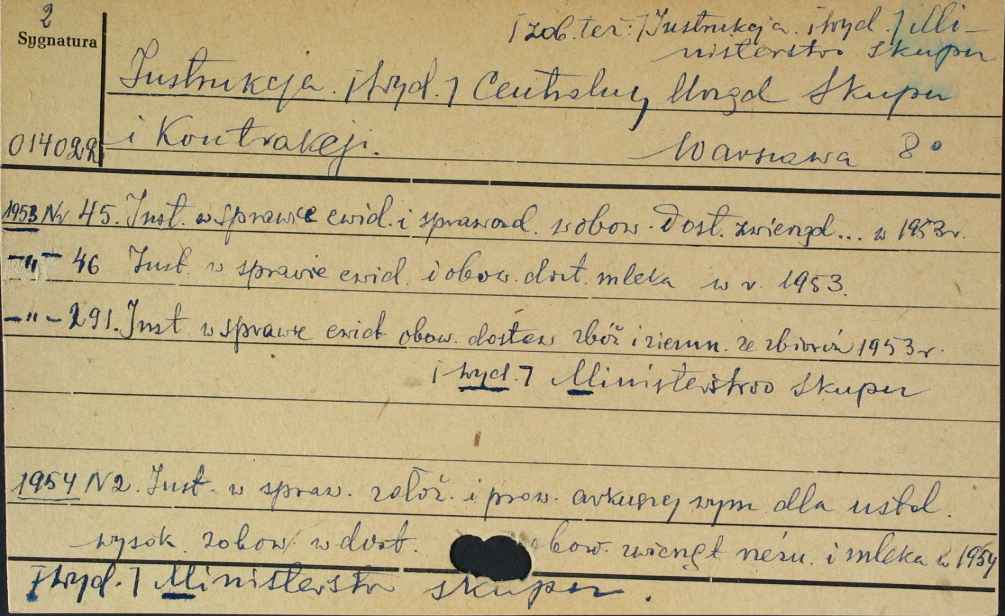 2
Sygnatura
[zob. też:] Instrukcja. [Wyd.] Mi-
nisterstwo Skupu
Instrukcja. [Wyd.] Centralny Urząd Skupu
014022
i Kontrakcji. Warszawa 8°
1953 Nr 45. Inst. w sprawie ewid. i sprawozd. z obow. dost. zwierząt... w 1953 r.
-"- 46 Inst. w sprawie ewid. i obow. dost. mleka w r. 1953.
-"- 291. Inst w sprawie ewid obow. dostaw zbóż i ziemn. ze zbiorów 1953 r.
[Wyd.] Ministerstwo Skupu
1954 N 2. Inst. w spraw. założ. i prow. arkuszy wym dla ustal.
wysok. zobow. w dost. obow. zwierząt rzeźn. i mleka w 1954
[Wyd.] Ministerstwo Skupu.